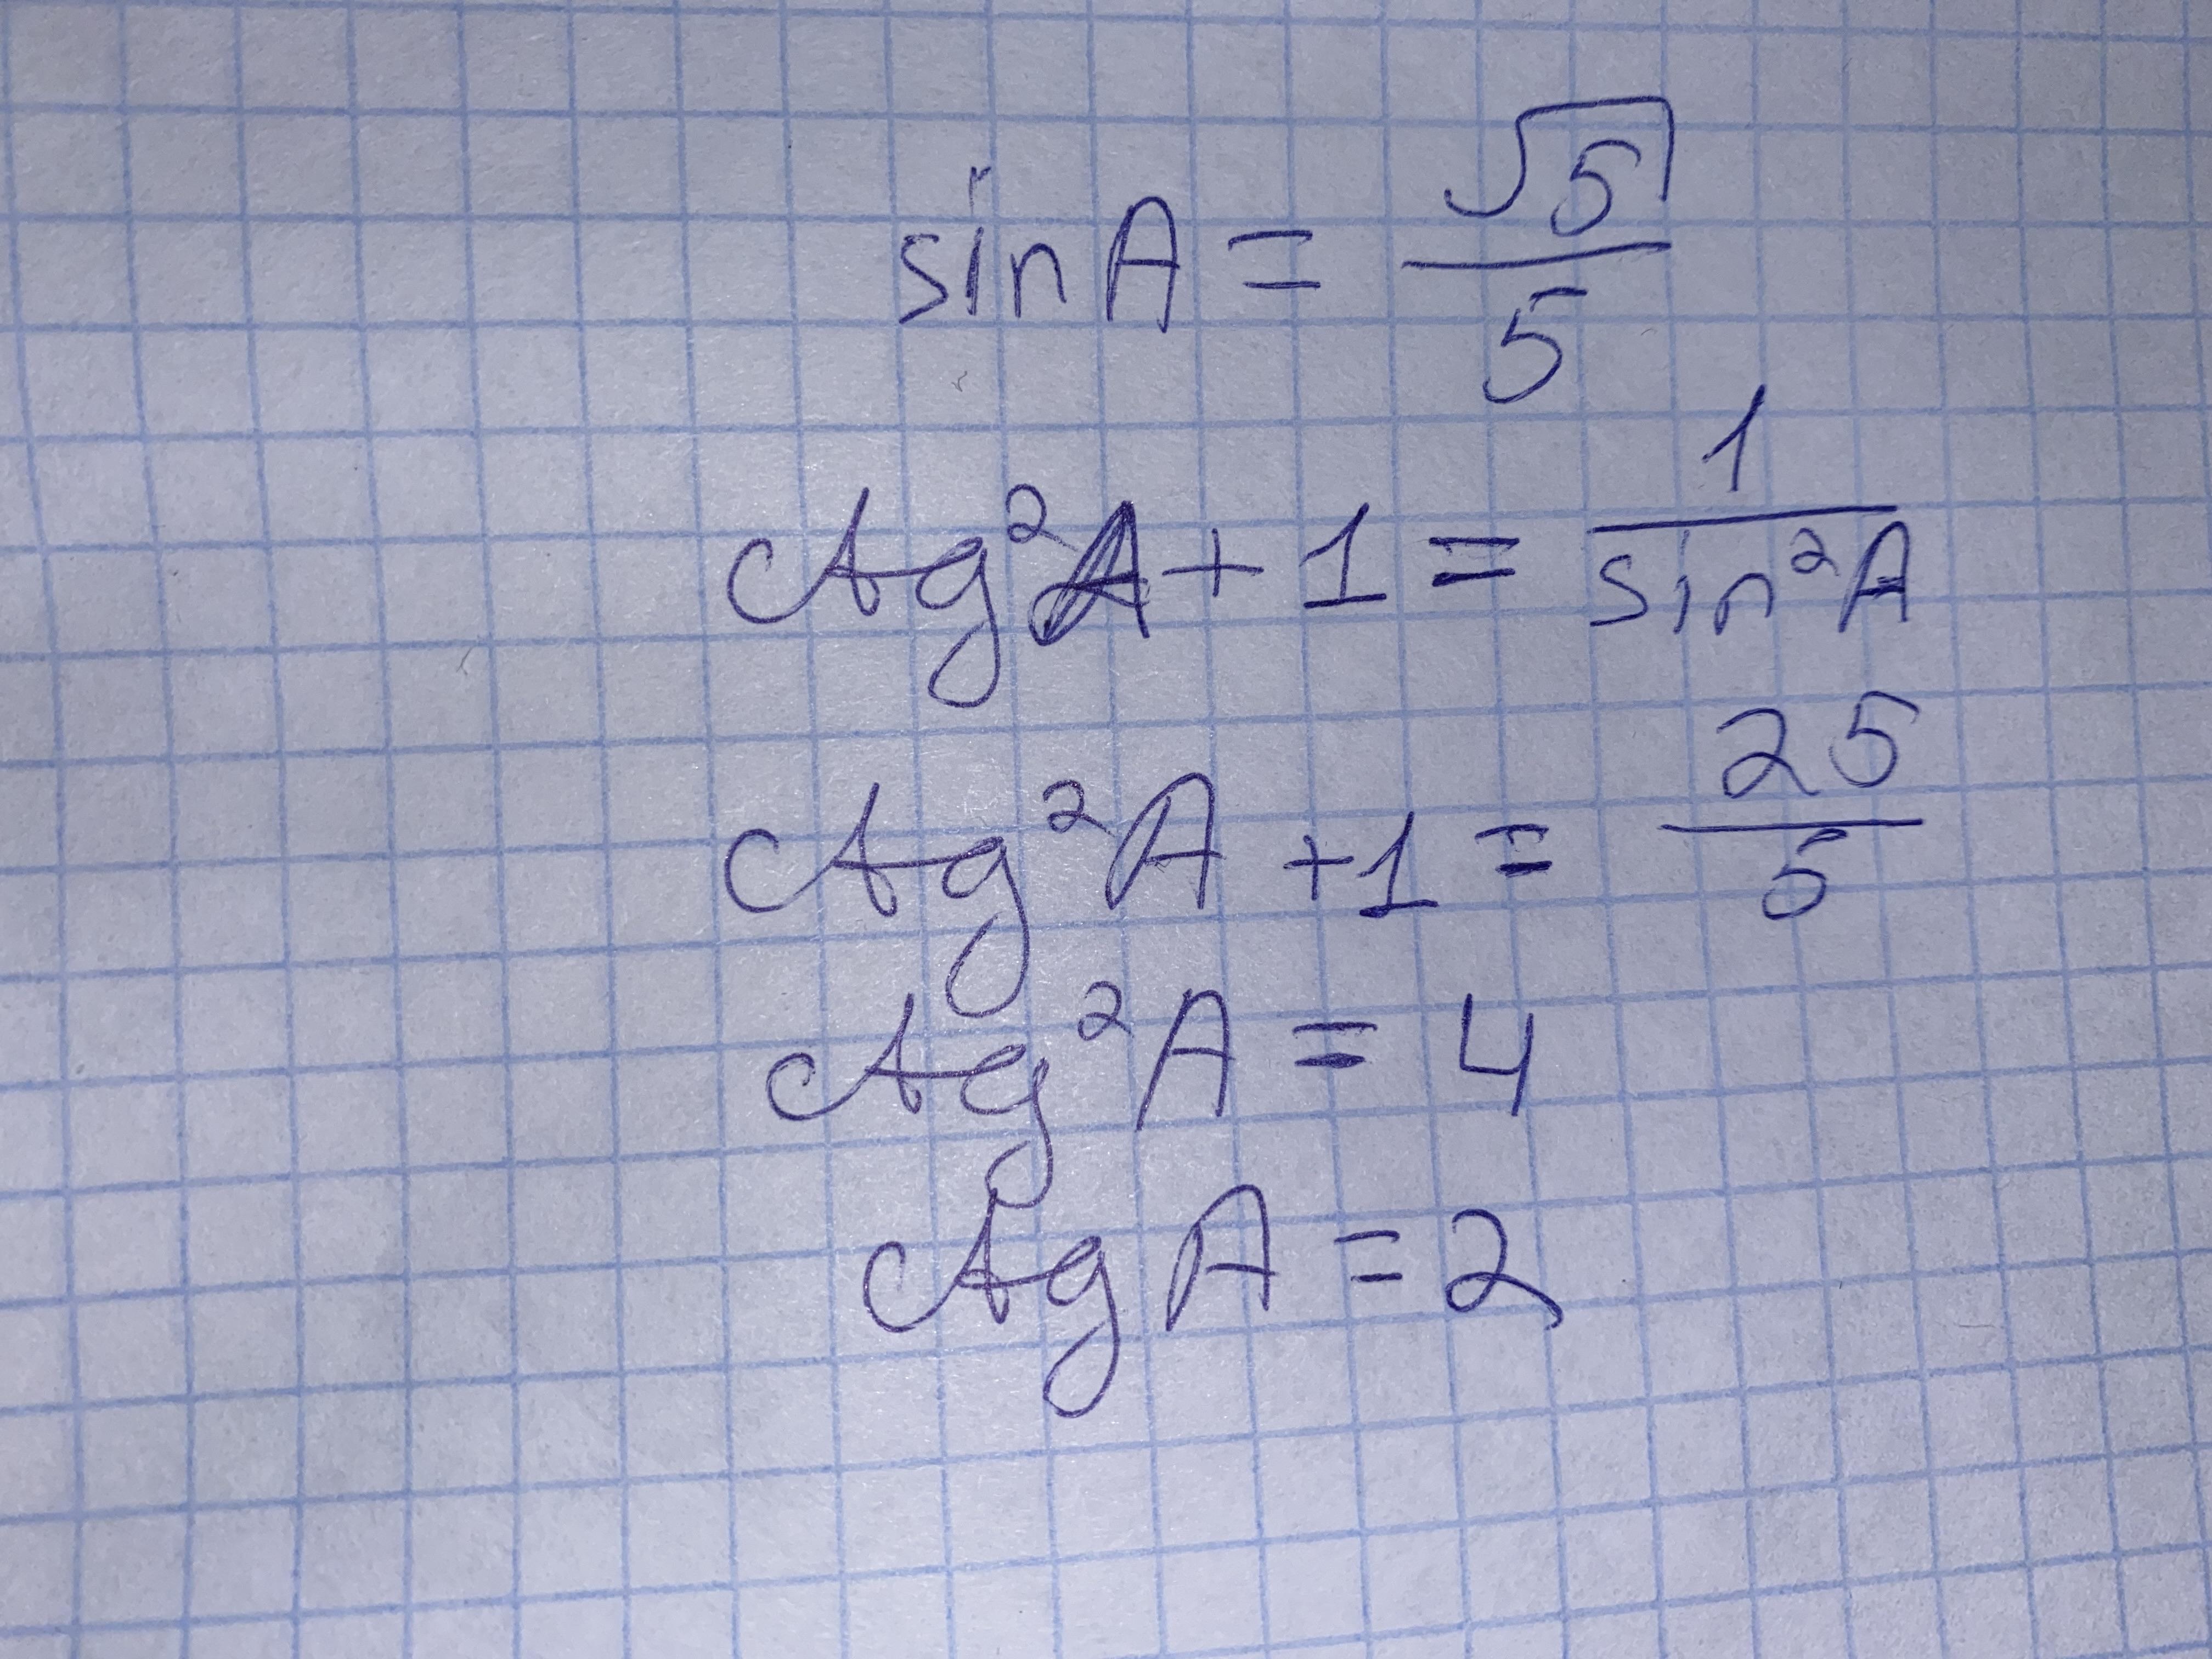 sin A = √5/5
ctg²A + 1 = 1/sin²A
ctg²A + 1 = 25/5
ctg²A = 4
ctg A = 2